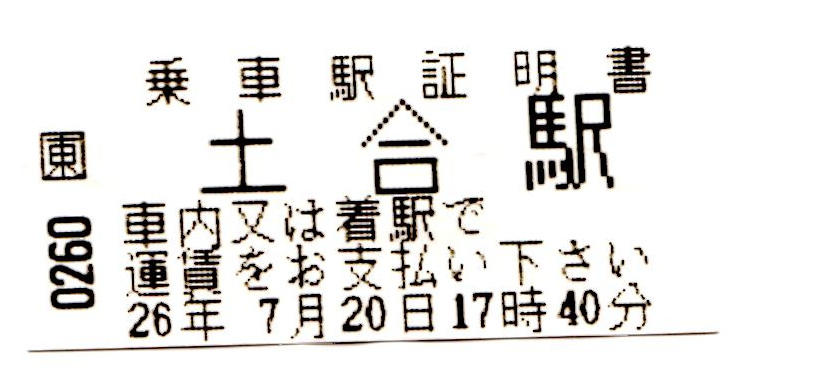 乗車駅証明書
東
土合駅
0260
車内又は着駅で
運賃をお支払い下さい
26年 7月20日17時40分